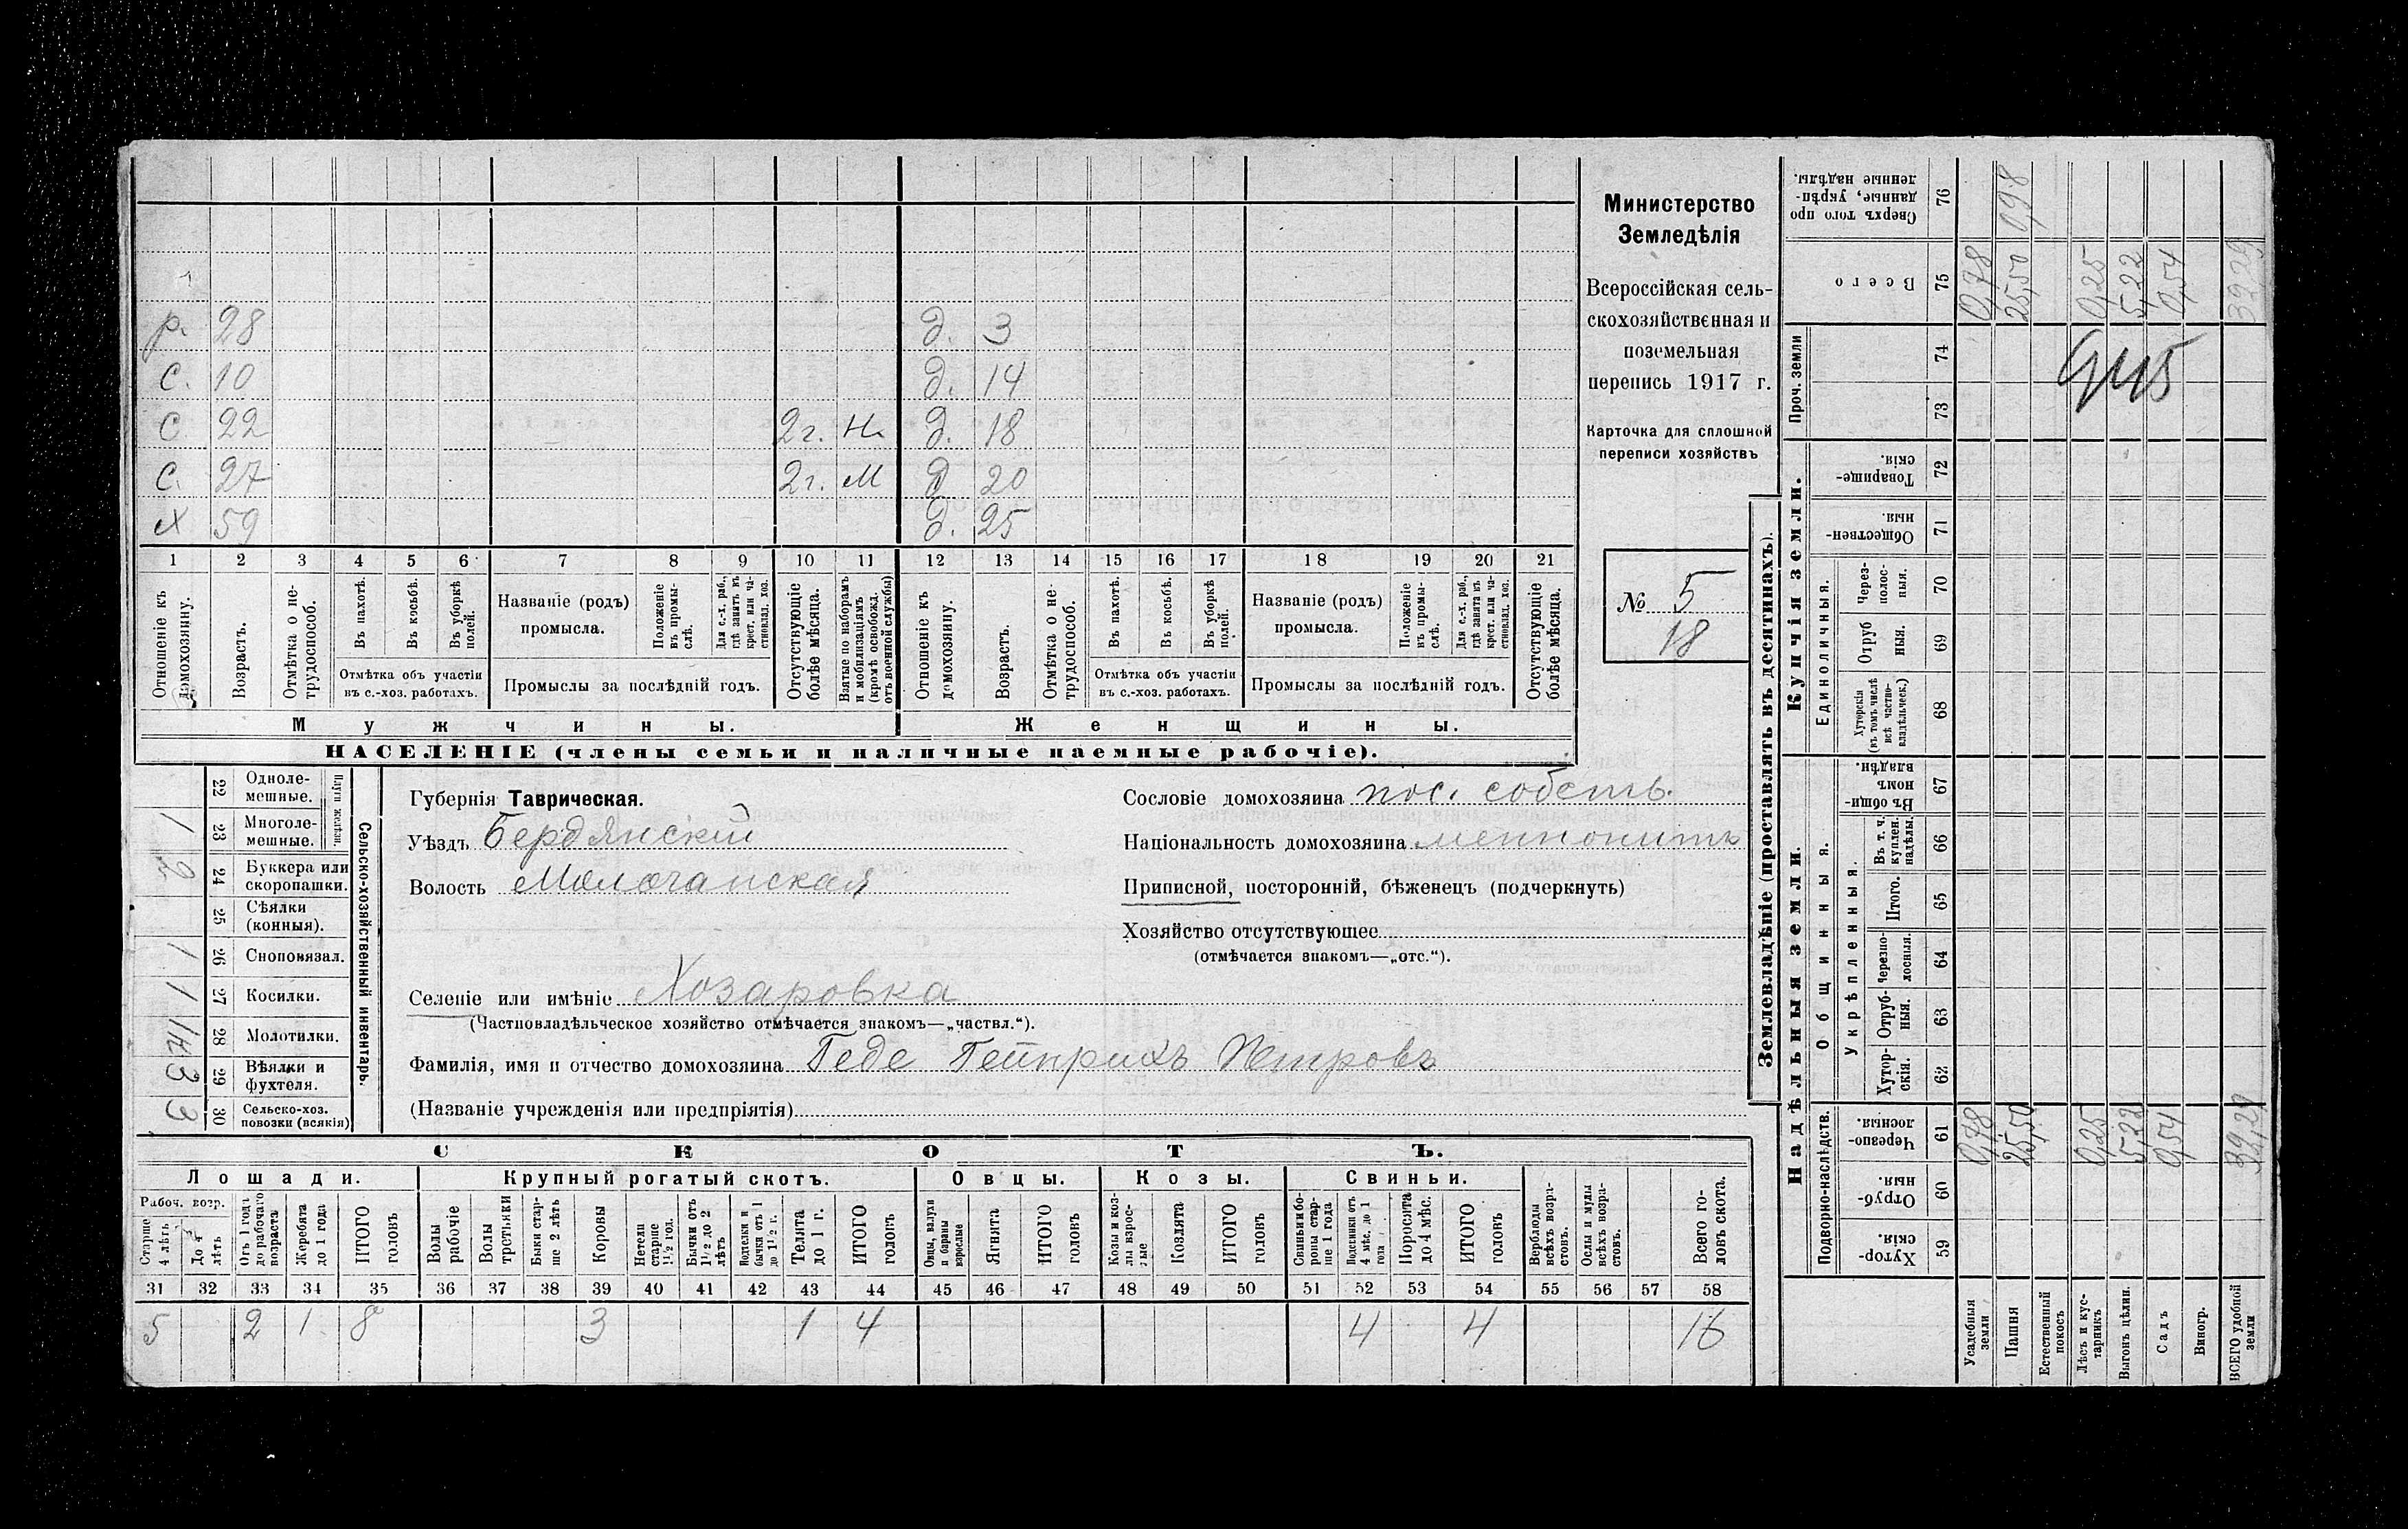 р. 28 д. 3
с. 10 д. 14
с 22 2 г. Н. д. 18
с. 27 2 г. М д 20
х 59 д. 25
1 2 3 4 5 6 7 8 9 10 11 12 13 14 15 16 17 18 19 20 21
Отношеніе къ домохозяину.
Возрастъ.
Отмѣтка о нетрудоспособ.
Въ пахотѣ.
Въ косьбѣ.
Въ уборкѣ полей.
Отмѣтка объ участіи
въ с.-хоз. работахъ.
Названіе (родъ)
промысла.
Положеніе въ промыслѣ.
Для с.-х. раб., гдѣ занятъ къ крест. или частновлад. хоз.
Промыслы за послѣдній годъ.
Отсутствующіе болѣе мѣсяца.
Взятые по наборамъ и мобилизаціямъ (кромѣ освобожд. отъ военной службы)
Отношеніе къ домохозяину.
Возрастъ.
Отмѣтка о нетрудоспособ.
Въ пахотѣ.
Въ косьбѣ.
Въ уборкѣ полей.
Отмѣтка объ участіи
въ с.-хоз. работахъ.
Названіе (родъ)
промысла.
Положеніе въ промыслѣ.
Для с.-х. раб., гдѣ занята къ крест. или частновлад. хоз.
Промыслы за послѣдній годъ.
Отсутствующіе болѣе мѣсяца.
Мужчины. Женщины.
НАСЕЛЕНІЕ (члены семьи и наличные наемные рабочіе).
Министерство
Земледѣлія
Всероссійская сель-
скохозяйственная и
поземельная
перепись 1917 г.
Карточка для сплошной
переписи хозяйствъ
№ 5
18
Сельско-хозяйственный инвентарь.
Плуги желѣзн.
22 Однолемешные.
1 23 Многолемешные.
2 24 Буккера или скоропашки.
25 Сѣялки (конныя).
1 26 Сноповязал.
1 27 Косилки.
28 Молотилки.
3 29 Вѣялки и фухтеля.
3 30 Сельско-хоз. повозки (всякія)
Губернія Таврическая.
Уѣздъ Бердянскій
Волость Молочанская
Селеніе или имѣніе Хозаровка
(Частновладѣльческое хозяйство отмѣчается знакомъ—„частвл.“).
Фамилія, имя и отчество домохозяина Геде Гейнрихъ Петровъ
(Названіе учрежденія или предпріятія)
Сословіе домохозяина пос. собств.
Національность домохозяина меннонитъ
Приписной, посторонній, бѣженецъ (подчеркнуть)
Хозяйство отсутствующее
(отмѣчается знакомъ—„отс.“).
СКОТЪ.
Лошади. Крупный рогатый скотъ. Овцы. Козы. Свиньи.
Рабоч. возр.
Старше 4 лѣтъ
До 4 лѣтъ
Отъ 1 года до рабочаго возраста
Жеребята до 1 года
ИТОГО головъ
Волы рабочіе
Волы третьяки
Быки старше 2 лѣтъ
Коровы
Нетели старше 1 1/2 год.
Бычки отъ 1 1/2 до 2 лѣтъ
Подтелки и бычки отъ 1 до 1 1/2 г.
Телята до 1 г.
ИТОГО головъ
Овцы, валухи и бараны взрослые
Ягнята
ИТОГО головъ
Козы и козлы взрослые
Козлята
ИТОГО головъ
Свиньи и бороны старше 1 года
Подсвинки отъ 4 мѣс. до 1 года
Поросята до 4 мѣс.
ИТОГО головъ
Верблюды всѣхъ возрастовъ.
Ослы и мулы всѣхъ возрастовъ.
Всего головъ скота.
31 32 33 34 35 36 37 38 39 40 41 42 43 44 45 46 47 48 49 50 51 52 53 54 55 56 57 58
5 2 1 8 3 1 4 4 4 16
Землевладѣніе (проставлять въ десятинахъ).
Надѣльныя земли.
Купчія земли.
Проч. земли
Подворно-наслѣдств.
Общинныя.
Укрѣпленныя.
Единоличныя.
Хуторскія. 59
Отрубныя. 60
Черезполосныя. 61
Хуторскія. 62
Отрубныя. 63
Черезполосныя. 64
Итого. 65
Въ т. ч. куплен. надѣлы. 66
Въ общинномъ владѣн. 67
Хуторскія (въ томъ числѣ всѣ частновладѣльческ.) 68
Отрубныя. 69
Черезполосныя. 70
Общественныя. 71
Товарищескія. 72
73
74
Всего 75
Сверхъ того проданные, укрѣпленные надѣлы. 76
Усадебныя земли 0,78 0,78
Пашня 25,50 25,50 0,98
Естественный покосъ
Лѣсъ и кустарникъ 0,25 0,25
Выгонъ цѣлин. 5,22 5,22
Садъ 0,54 0,54
Виногр.
ВСЕГО удобной земли 32,29 32,29